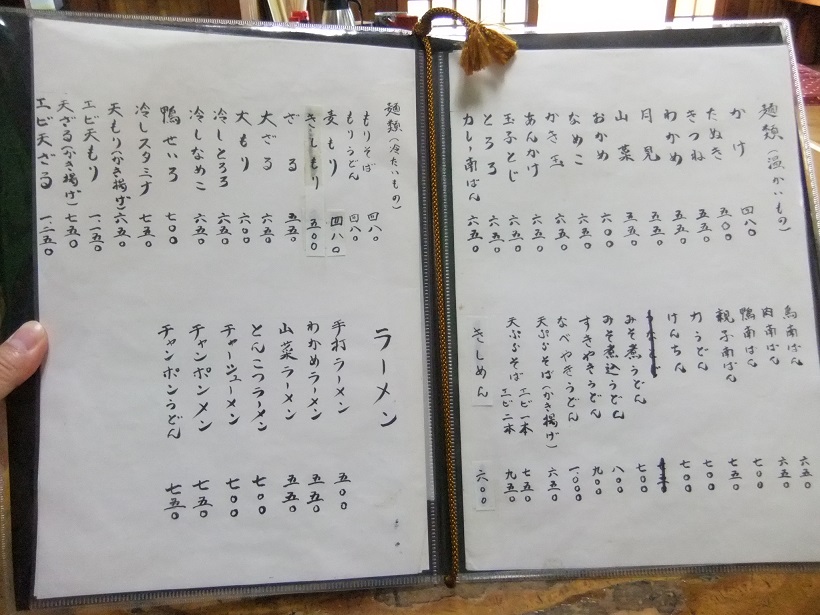 麺類(温かいもの)
かけ 四八〇
たぬき 五〇〇
きつね 五五〇
わかめ 五五〇
月見 五五〇
山菜 五五〇
おかめ 六〇〇
なめこ 六五〇
かき玉 六五〇
あんかけ 六五〇
玉子とじ 六五〇
とろろ 六五〇
カレー南ばん 六五〇
鳥南ばん 六五〇
肉南ばん 六五〇
鴨南ばん 七〇〇
親子南ばん 七五〇
力うどん 七〇〇
けんちん 七〇〇
みそ煮うどん 七〇〇
みそ煮込うどん 八〇〇
すきやきうどん 九〇〇
なべやきうどん 一、〇〇〇
天ぷらそば(かき揚げ) 六五〇
天ぷらそば エビ一本 七五〇
天ぷらそば エビ二本 九五〇
きしめん 六〇〇
麺類(冷たいもの)
もりそば 四八〇
もりうどん 四八〇
麦もり 四八〇
きしもり 五〇〇
ざる 五五〇
大ざる 六五〇
大もり 六〇〇
冷しとろろ 六五〇
冷しなめこ 六五〇
鴨せいろ 七〇〇
冷しスタミナ 七五〇
天もり(かき揚げ) 六五〇
エビ天もり 一、一五〇
天ざる(かき揚げ) 七五〇
エビ天ざる 一、二五〇
ラーメン
手打ラーメン 五〇〇
わかめラーメン 五五〇
山菜ラーメン 五五〇
とんこつラーメン 七〇〇
チャーシューメン 七〇〇
チャンポンメン 七五〇
チャンポンうどん 七五〇